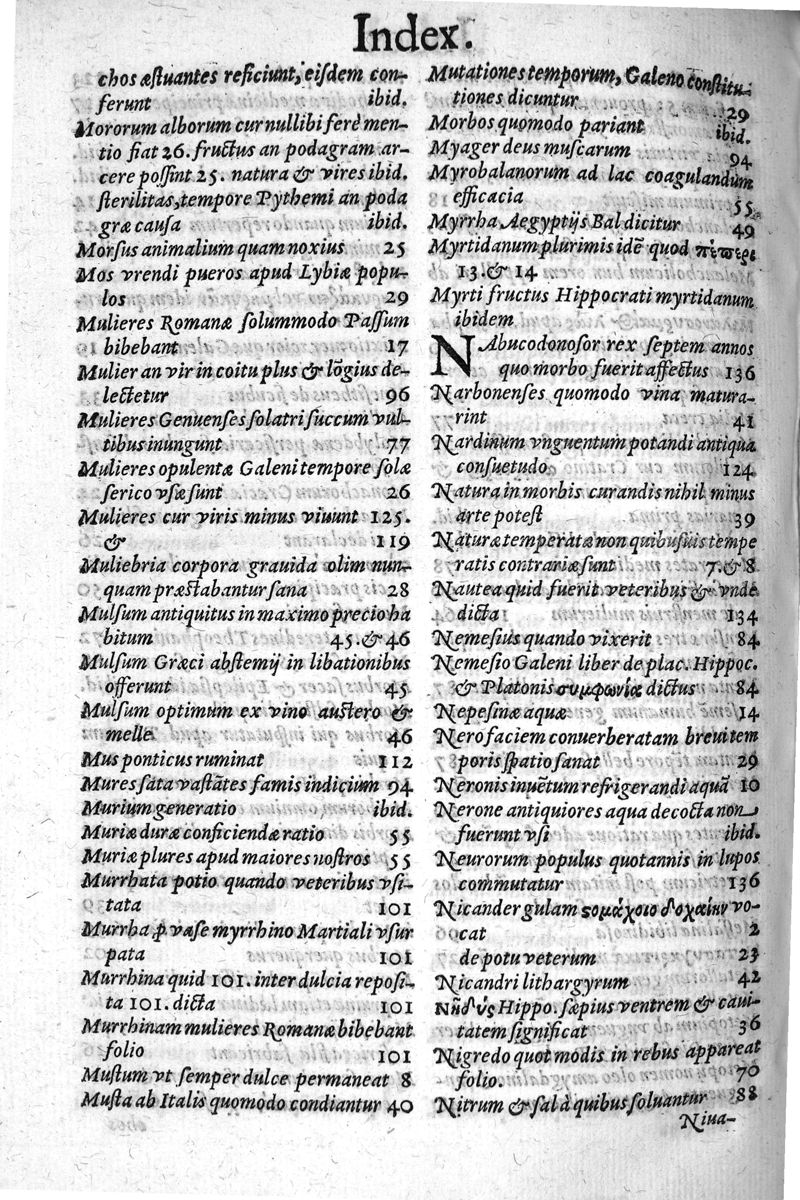 Index.
chos æstuantes reficiunt, eisdem con-
ferunt ibid.
Mororum alborum cur nullibi ferè men-
tio fiat 26. fructus an podagram ar-
cere possint 25. natura & vires ibid.
sterilitas, tempore Pythemi an poda
græ causa ibid.
Morsus animalium quam noxius 25
Mos vrendi pueros apud Lybiæ popu-
los 29
Mulieres Romanæ solummodo Passum
bibebant 17
Mulier an vir in coitu plus & lōgius de-
lectetur 96
Mulieres Genuenses solatri succum vul-
tibus inungunt 77
Mulieres opulentæ Galeni tempore solæ
serico vsæ sunt 26
Mulieres cur viris minus viuunt 125.
& 119
Muliebria corpora grauida olim nun-
quam præstabantur sana 28
Mulsum antiquitus in maximo precio ha
bitum 45. & 46
Mulsum Græci abstemij in libationibus
offerunt 45
Mulsum optimum ex vino austero &
melle 46
Mus ponticus ruminat 112
Mures sata vastātes famis indicium 94
Murium generatio ibid.
Muriæ duræ conficiendæ ratio 55
Muriæ plures apud maiores nostros 55
Murrhata potio quando veteribus vsi-
tata 101
Murrha ꝓ vase myrrhino Martiali vsur
pata 101
Murrhina quid 101. inter dulcia reposi-
ta 101. dicta 101
Murrhinam mulieres Romanæ bibebant
folio 101
Mustum vt semper dulce permaneat 8
Musta ab Italis quomodo condiantur 40
Mutationes temporum, Galeno constitu-
tiones dicuntur 29
Morbos quomodo pariant ibid.
Myager deus muscarum 94
Myrobalanorum ad lac coagulandum
efficacia 55
Myrrha Aegyptijs Bal dicitur 49
Myrtidanum plurimis idē quod πέπερι
13. & 14
Myrti fructus Hippocrati myrtidanum
ibidem
NAbucodonosor rex septem annos
quo morbo fuerit affectus 136
Narbonenses quomodo vina matura-
rint 41
Nardinum vnguentum potandi antiqua
consuetudo 124
Natura in morbis curandis nihil minus
arte potest 39
Naturæ temperatæ non quibusuis tempe
ratis contrariæ sunt 7. & 8
Nautea quid fuerit veteribus & vnde
dicta 134
Nemesius quando vixerit 84
Nemesio Galeni liber de plac. Hippoc.
& Platonis συμφωνίας dictus 84
Nepesinæ aquæ 14
Nero faciem conuerberatam breui tem
poris spatio sanat 29
Neronis inuētum refrigerandi aquā 10
Nerone antiquiores aqua decocta non
fuerunt vsi ibid.
Neurorum populus quotannis in lupos
commutatur 136
Nicander gulam ςομάχοιο δοχαίην vo-
cat 2
de potu veterum 23
Nicandri lithargyrum 42
Νηδὺς Hippo. sæpius ventrem & caui-
tatem significat 36
Nigredo quot modis in rebus appareat
folio. 70
Nitrum & sal à quibus soluantur 88
Niua-